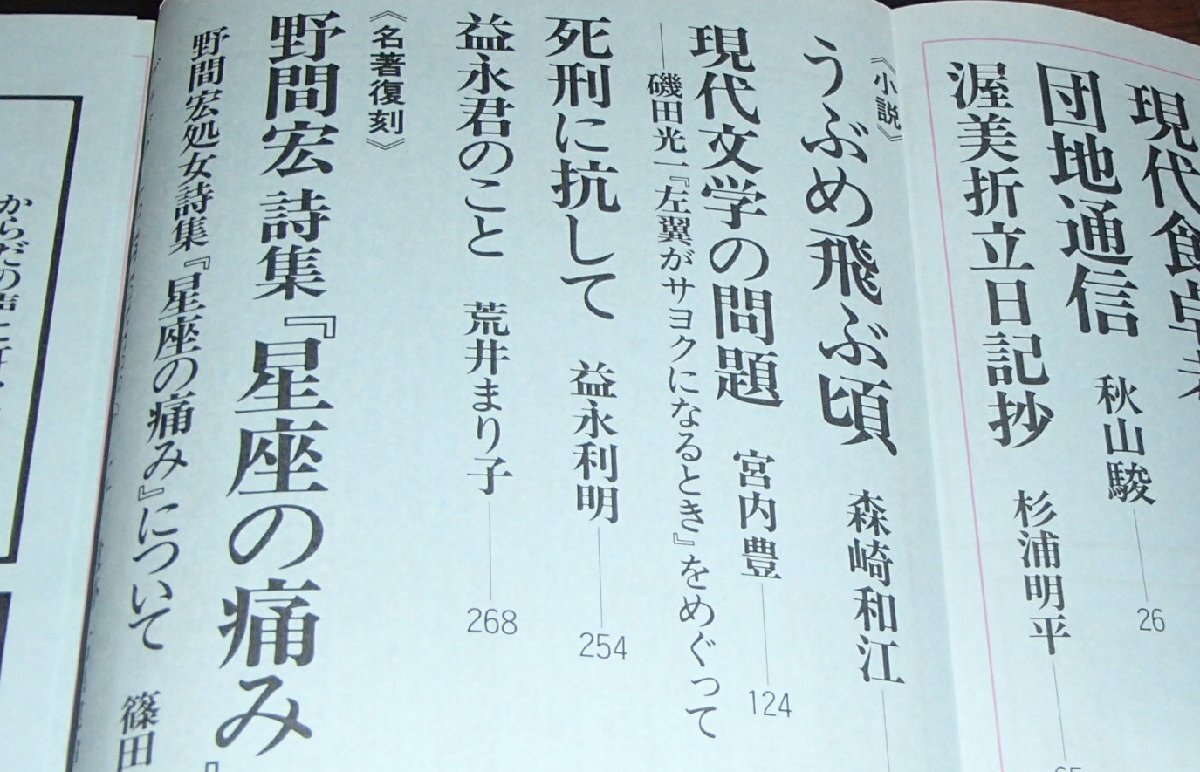 現代食卓考
団地通信 秋山駿 26
渥美折立日記抄 杉浦明平 65
《小説》
うぶめ飛ぶ頃 森崎和江
現代文学の問題 宮内豊 124
―磯田光一『左翼がサヨクになるとき』をめぐって
死刑に抗して 益永利明 254
益永君のこと 荒井まり子 268
《名著復刻》
野間宏 詩集『星座の痛み』
野間宏処女詩集『星座の痛み』について 篠田
からだの声に